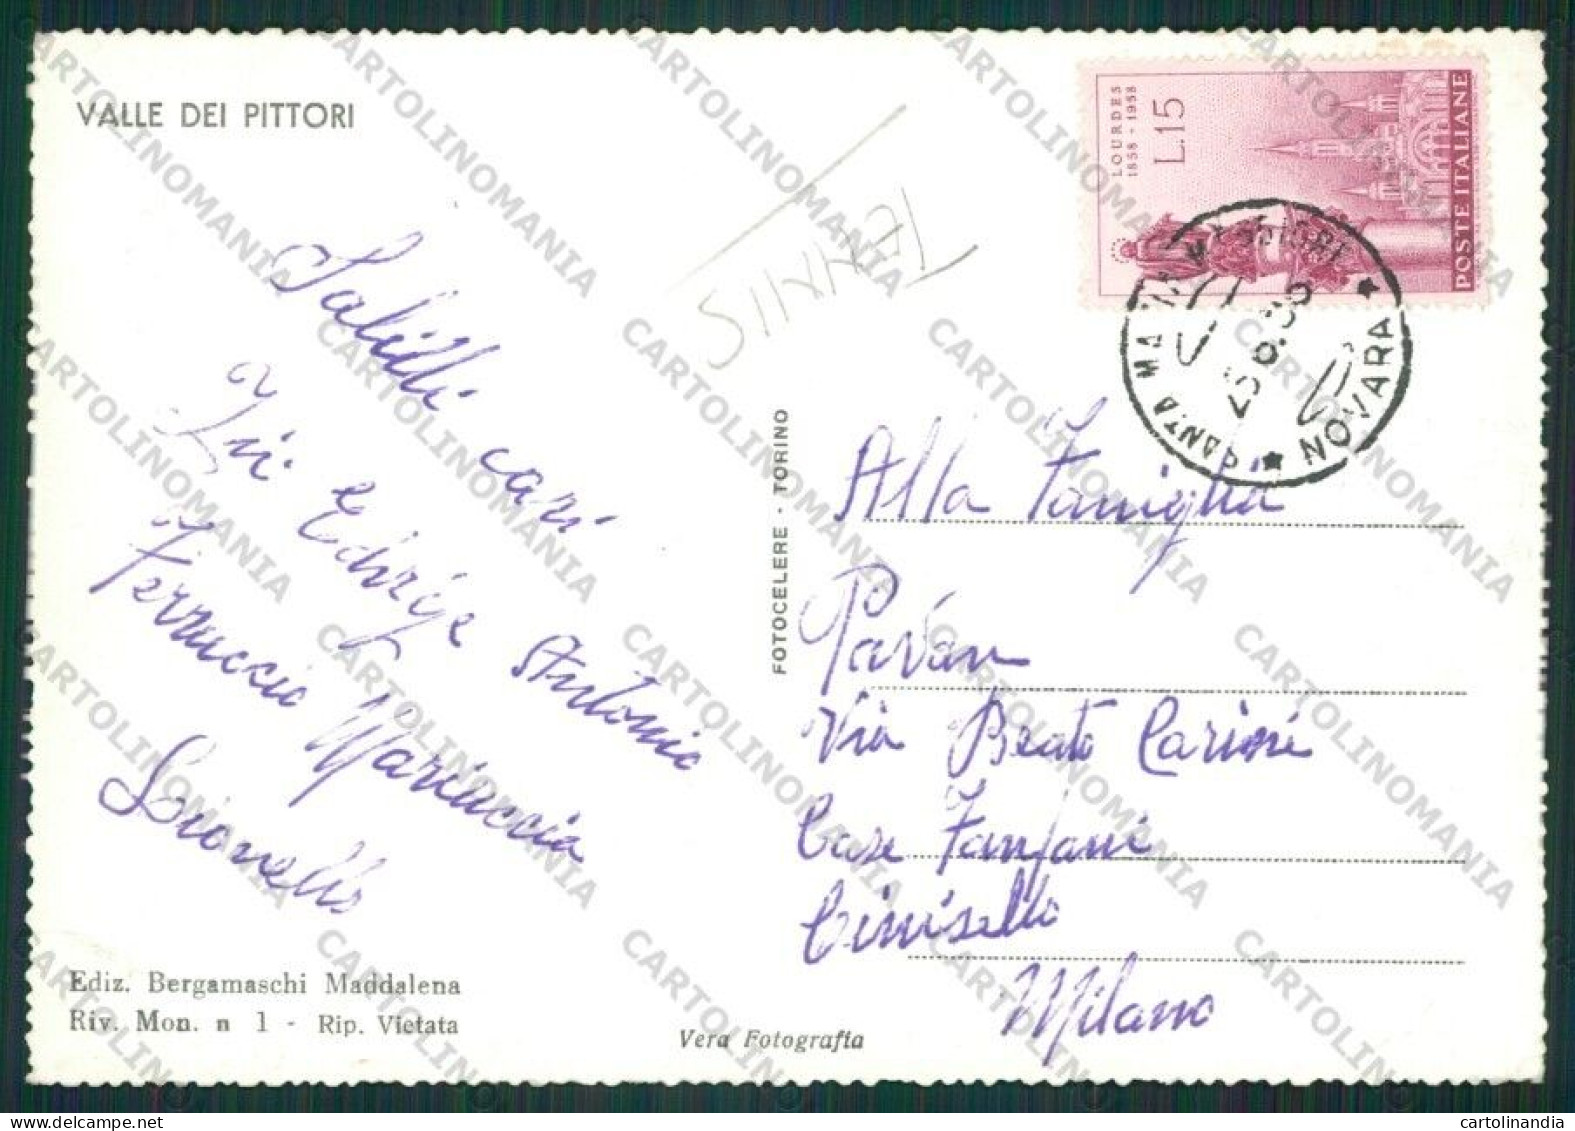 VALLE DEI PITTORI
LOURDES
1858 - 1958
L.15
POSTE ITALIANE
SANTA MARIA MAGGIORE
NOVARA
Alla Famiglia
Pavan
Via Beato Carino
Case Fanfani
Cinisello
Milano
Saluti cari
Zii Edvige Antonio
Ferruccio Mariuccia
Lionello
FOTOCELERE - TORINO
Ediz. Bergamaschi Maddalena
Riv. Mon. n 1 - Rip. Vietata
Vera Fotografia
CARTOLINOMANIA
cartolinandia